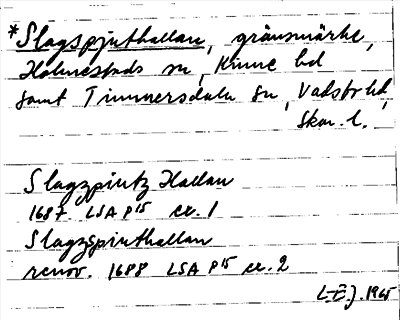 *Slagspjuthallan, gränsmärke,
Holmestads sn, Kinne hd
samt Timmersdala sn, Vadsbo hd,
Skar. l.
Slagzpiutz Hallan
1687 LSA P15 ex. 1
Slagzspiuthallan
renov. 1688 LSA P15 ex. 2
1965